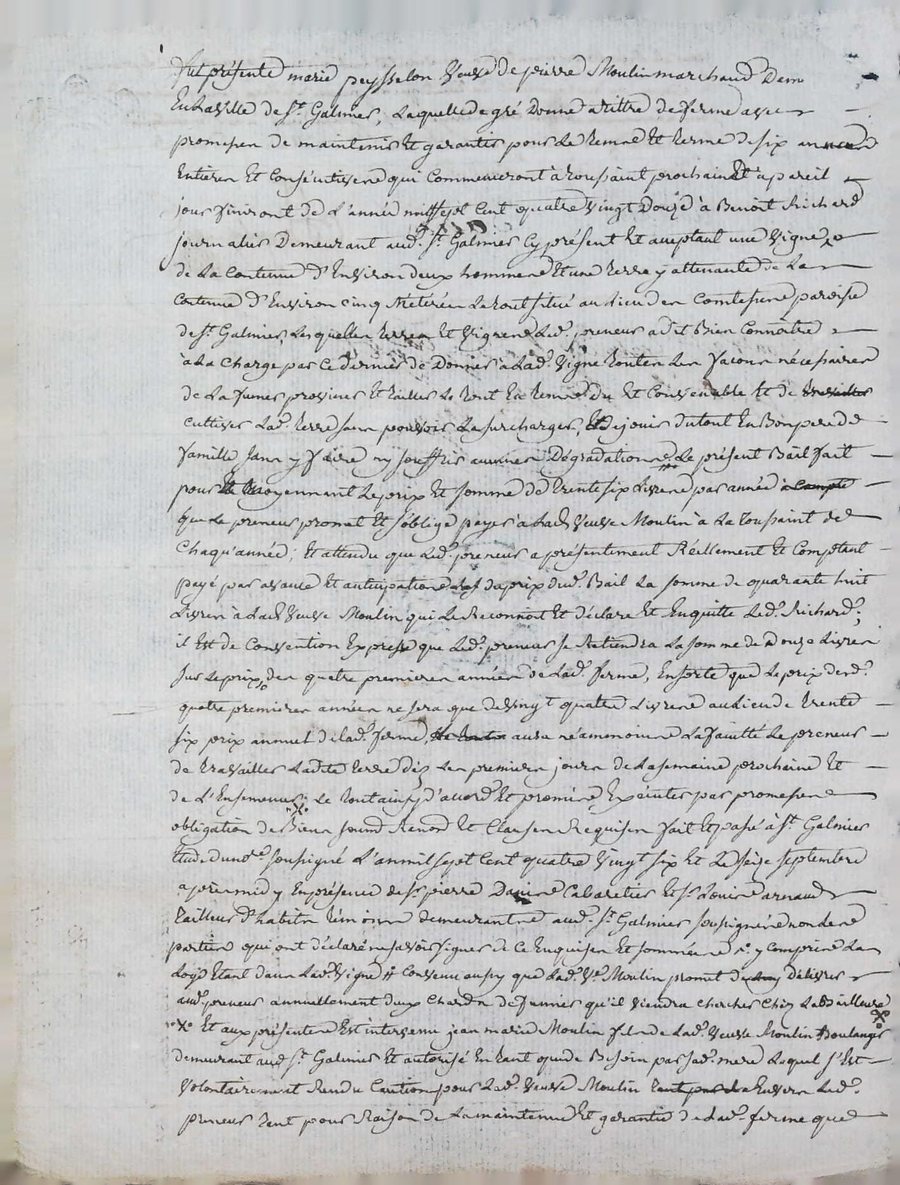 fut présente marie peysselon veuve de pierre Moulin marchand Dem
En la ville de St. Galmier, Laquelle de gré Donne a tittre de ferme avec
promesse de maintenir Et garantir pour Le tems Et terme de six années
Entieres Et Consécutives qui Commenceront à toussaint prochain Et à pareil
jour finiront de L'année mil sept Cent quatre vingt Douze à Benoit Richard
journalier Demeurant aud. St. Galmier Cy présent Et acceptant une vigne
de La Contenue D'Environ deux hommées Et une terre y attenante de La
Contenue D'Environ cinq Meterées Le tout situé au Lieu de paroisse
de St. Galmier, Lesquelles terres Et vignes Led. preneur a dit Bien Connaitre
à La Charge par Ce dernier de Donner à Lad. vigne toutes Les façons nécessaires
de La fumer provigner Et tailler Le tout En tems Du Et Convenable Et de
Cultiver Lad. terre sans pouvoir La surcharger, Et De jouir du tout En Bon pere de
famille sans y faire ny souffrir aucunes Dégradations Le présent Bail fait
pour Et Moyennant Le prix Et somme de trente six Livres par année
que Le preneur promet Et s'oblige payer à Lad. Veuve Moulin à La toussaint de
Chaqu'année; Et attendu que Led. preneur a présentement Réellement Et Comptant
payé par avance Et anticipation du prix dud. Bail La somme de quarante huit
Livres à Lad. Veuve Moulin qui Le Reconnoit Et déclare Et En quitte Led. Richard;
il Est de Convention Expresse que Led. preneur se Retiendra La somme de Douze Livres
sur Le prix des quatre premieres années de Lad. ferme, En sorte que Le prix desd.
quatre premieres années ne sera que de vingt quatre Livres au Lieu de trente
six prix annuel de Lad. ferme, aura néammoins La faculté Le preneur
de travailler Ladite terre dès Les premiers jours de La semaine prochaine Et
de L'Ensemencer Le tout ainsy d'accord Et promis Exécuter par promesses
obligation de Biens soumis Renon Et Clauses Requises fait Et passé à St. Galmier
Etude du no.re soussigné L'an mil sept Cent quatre vingt six Et Le seize septembre
apres midy En présence de Sr. pierre Cabaretier Et Sr. Louis arnaud
tailleur D'habits témoins demeurants aud. St. Galmier soussignés non Les
parties qui ont déclaré ne savoir signer de Ce Enquises Et sommées y Compris La
Loge Etant dans Lad. vigne Convenu aussy que Lad. Ve. Moulin promet Délivrer
aud. preneur annuellement deux Chards de fumier qu'il viendra chercher Chez La Bailleuse
Et aux présentes Est intervenu jean marie Moulin fils de Lad. veuve Moulin Boulanger
demeurant aud. St. Galmier Et autorisé En tant que de Besoin par sad. mere Lequel s'Est
volontairement Rendu Caution pour Lad. veuve Moulin Envers Led.
preneur tant pour Raison de La maintenue Et garantie de Lad. ferme que